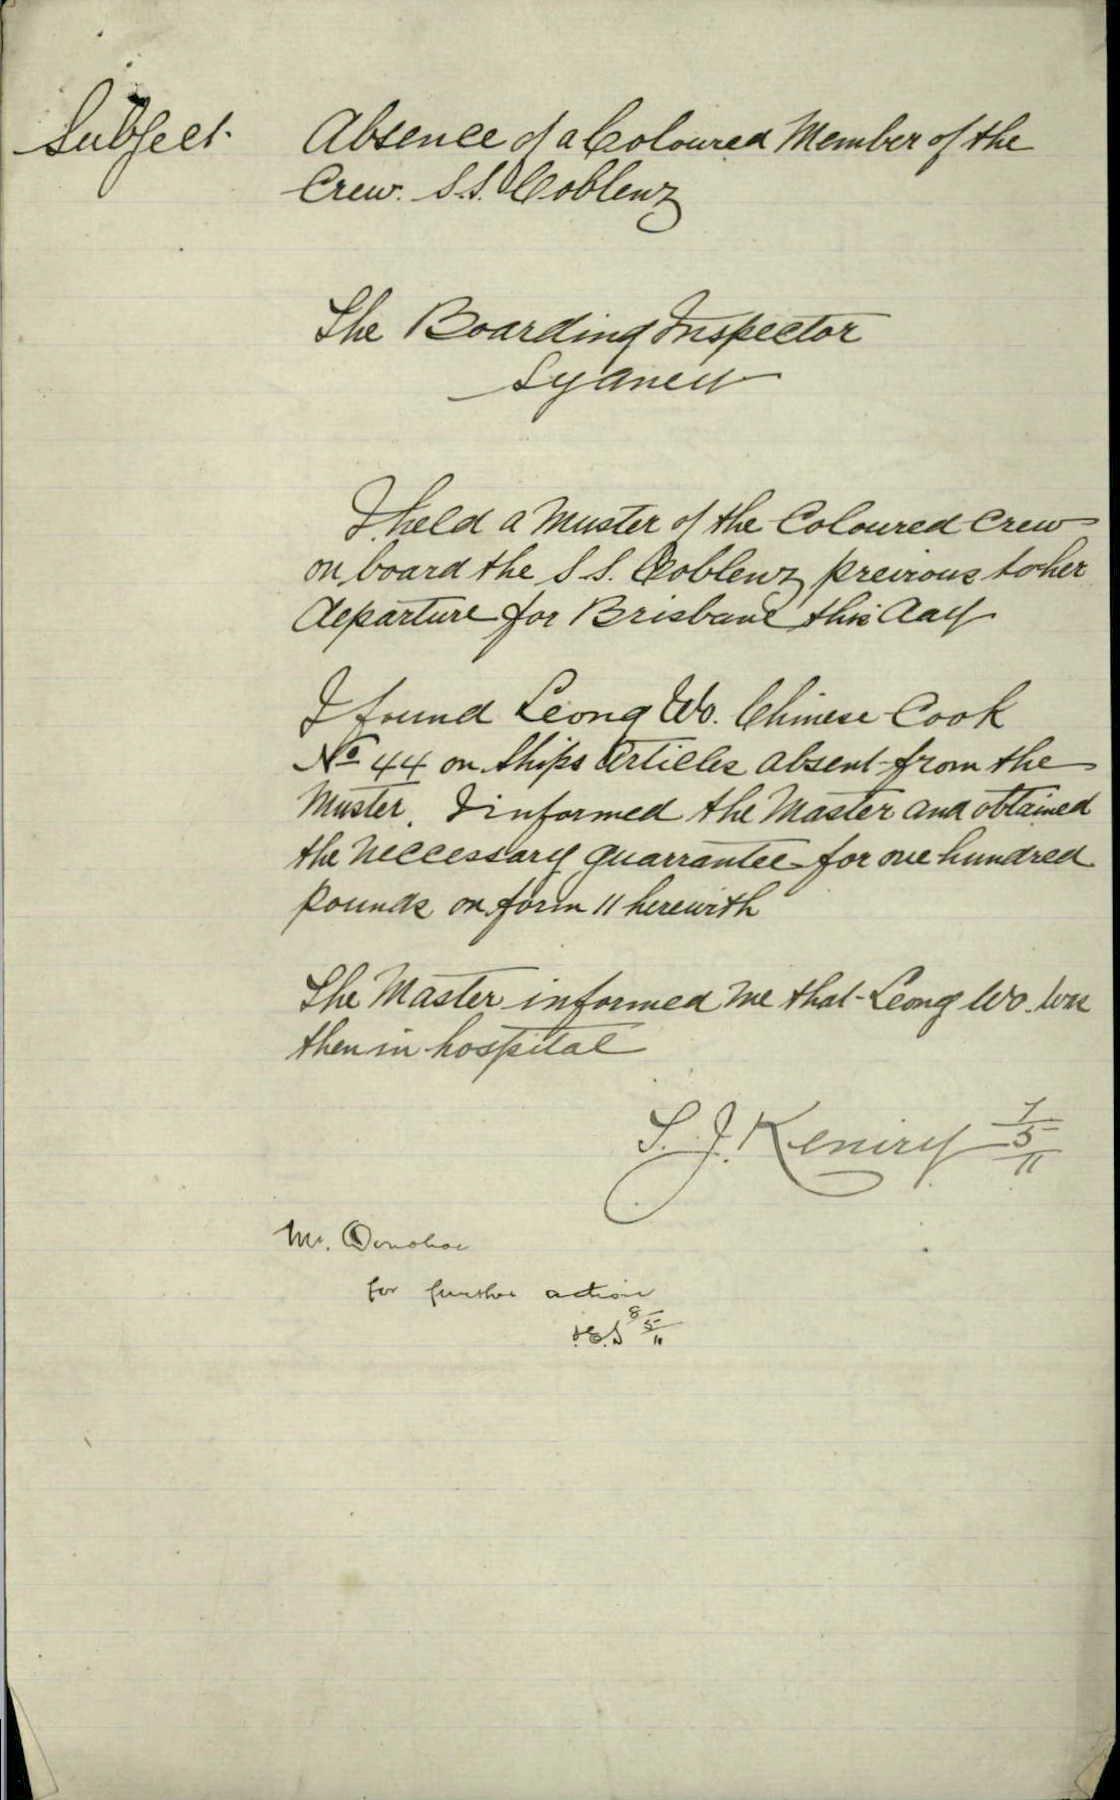 Subject. Absence of a Coloured Member of the
Crew. S.S. Coblenz
The Boarding Inspector
Sydney
I held a Muster of the Coloured Crew
on board the S.S. Coblenz previous to her
departure for Brisbane this day
I found Leong Wo. Chinese Cook
No 44 on Ships Articles absent from the
Muster. I informed the Master and obtained
the neccessary guarrantee for one hundred
pounds on form 11 herewith
The Master informed me that Leong Wo. was
then in hospital
T. J. Keniry 7/5/11
Mr. Donohoe
for further action
8/5/11